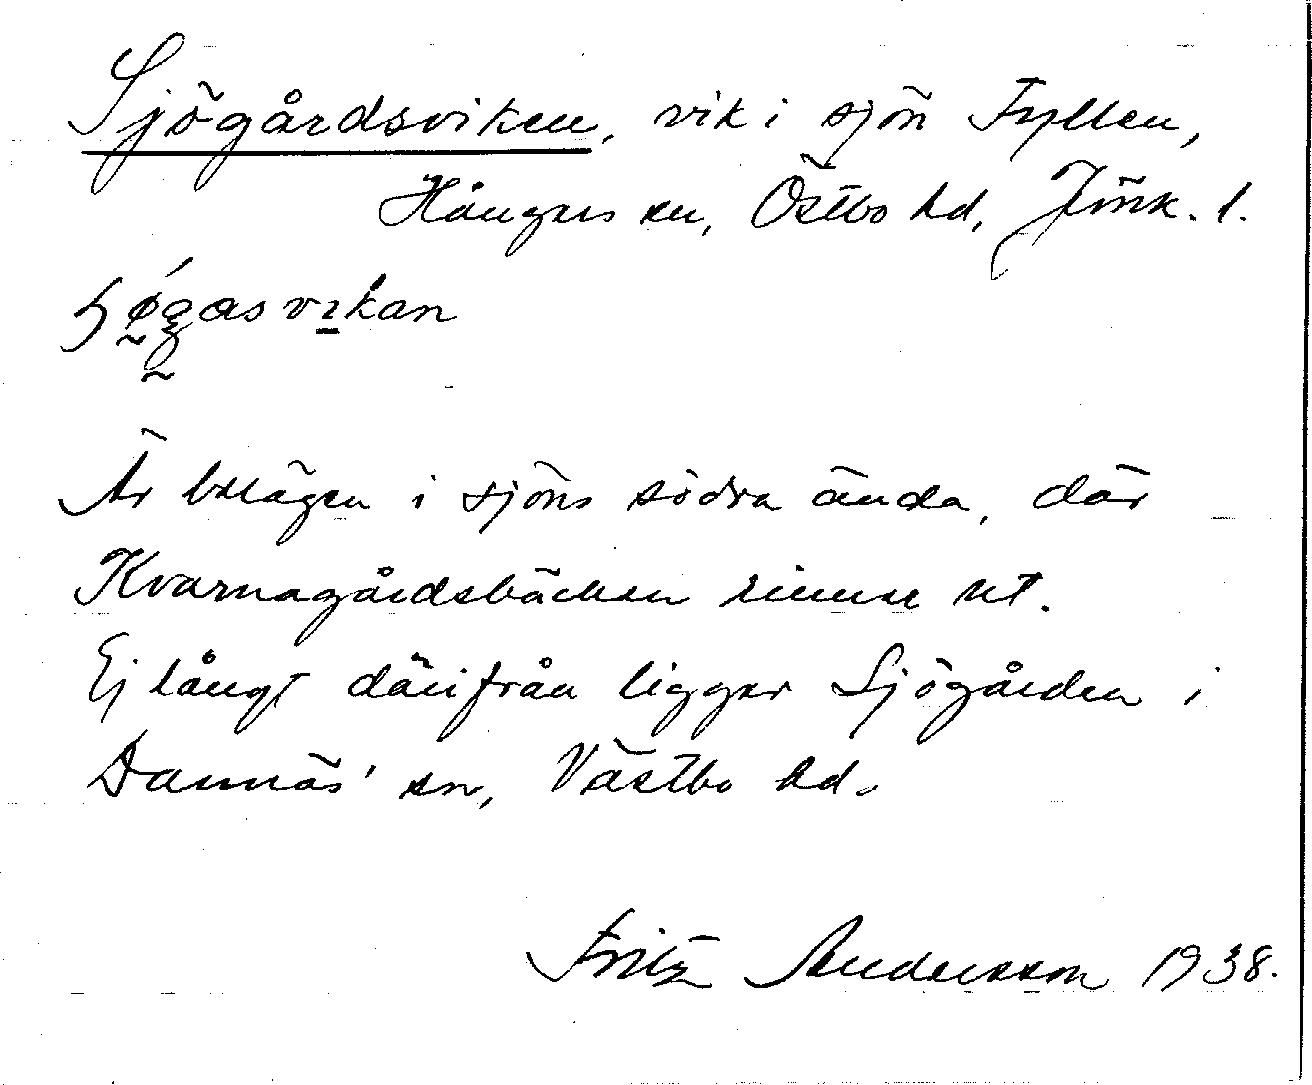 Sjögårdsviken, vik i sjön Fryllen,
Hångers sn, Östbo hd, Jönk. l.
Är belägen i sjöns södra ända, där
Kvarnagårdsbäcken rinner ut.
Ej långt därifrån ligger Sjögården i
Dannäs' sn, Västbo hd.
Fritz Andersson 1938.